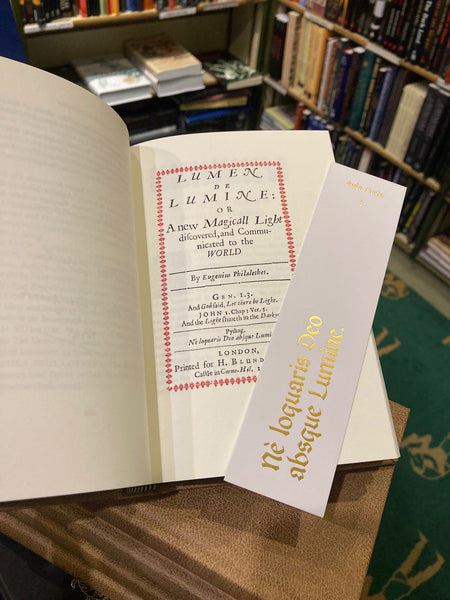 LUMEN
DE
LUMINE:
OR
A new Magicall Light
discovered, and Commu-
nicated to the
WORLD
By Eugenius Philalethes.
GEN. 1.3.
And God said, Let there be Light.
JOHN 1. Chap: Ver. 5.
And the Light shineth in the
Pythag.
Nè loquaris Deo absque
LONDON,
Printed for H.
Castle in
Nè loquaris Deo
absque Lumine.